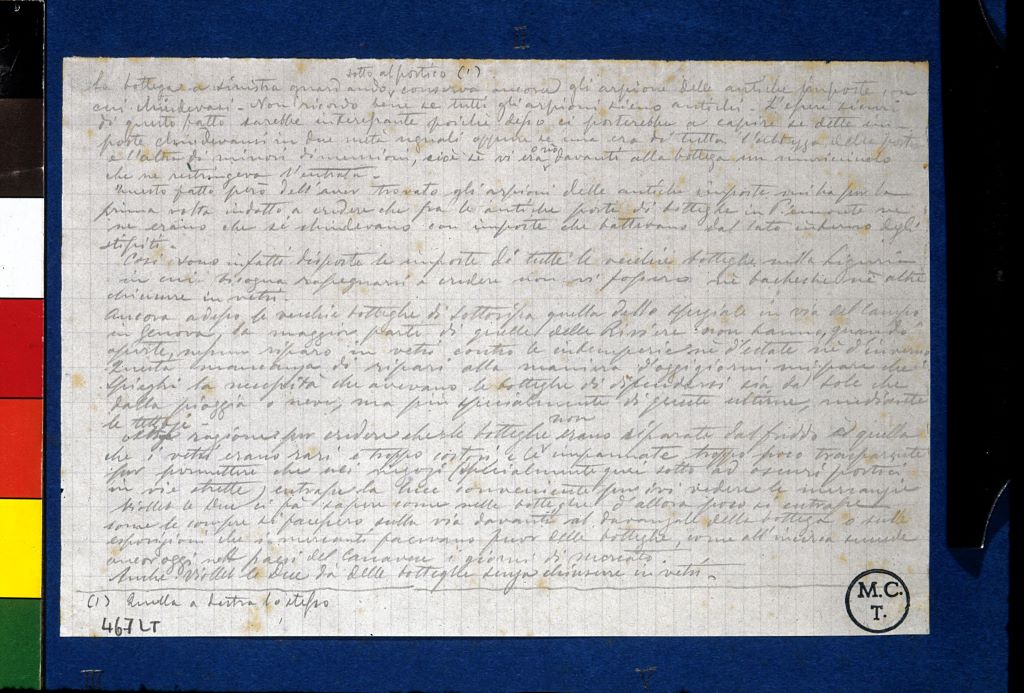 II
sotto al portico (1)
La bottega a sinistra guardando, conserva ancora gli arpioni delle antiche imposte, in
cui chiudevasi. Non ricordo bene se tutti gli arpioni siano antichi. L'essere sicuri
di questo fatto sarebbe interessante poichè desso ci porterebbe a capire se delle im-
poste chiudevansi in due metà uguali oppure se una era di tutta l'altezza della porta
e l'altra di minori dimensioni, cioè se vi era davanti alla bottega un muricciuolo
che ne restringeva l'entrata.
Questo fatto però dell'aver trovato gli arpioni delle antiche imposte mi ha per la
prima volta indotto a credere che fra le antiche porte di botteghe in Piemonte ve
ne erano che si chiudevano con imposte che battevano dal lato interno degli
stipiti.
Così sono infatti disposte le imposte di tutte le vecchie botteghe nella Liguria
in cui bisogna rassegnarsi a credere non vi fossero nè bacheche nè altre
chiusure in vetri.
Ancora adesso le vecchie botteghe di Sottoripa quella dello speziale in via del Campo
in Genova la maggior parte di quelle delle Riviere non hanno, quando
aperte, nessun riparo in vetri contro le intemperie nè d'estate nè d'inverno
Questa mancanza di ripari alla maniera d'oggigiorno mi pare che
spieghi la necessità che avevano le botteghe di difendersi sia dal sole che
dalla pioggia o nevi, ma più specialmente di queste ultime, mediante
le tettoje.
non
Altre ragioni per credere che le botteghe erano riparate dal freddo è quella
che i vetri erano rari e troppo costosi e le impannate troppo poco trasparenti
per permettere che nei negozi specialmente quei sotto ad oscuri portici
in vie strette, entrasse la luce conveniente per ivi vedere le mercanzie
Viollet le Duc ci fa sapere come nelle botteghe d'allora poco si entrasse
come le compre si facessero sulla via davanti al davanzale della bottega o sulle
esposizioni che i mercanti facevano fuor delle botteghe, come all'incirca succede
ancor oggi nei paesi del Canavese i giorni di mercato.
Anche Viollet le Duc dà delle botteghe senza chiusure in vetri.
(1) Quella a destra lo stesso
467 LT
M.C.
T.
III
V